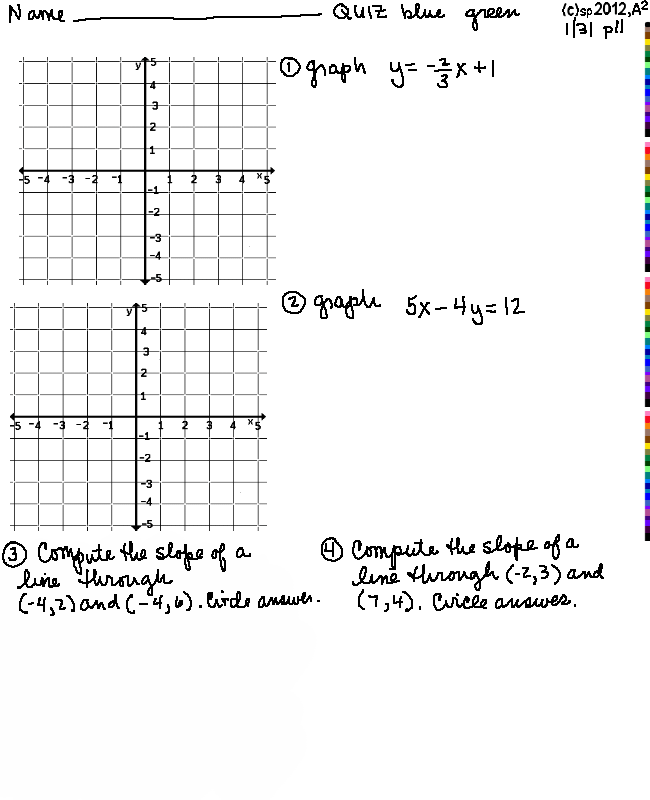 Name QUIZ blue green (c)sp2012,A²
1/31 p11
① graph y = -2/3x + 1
y 5
4
3
2
1
-5 -4 -3 -2 -1 1 2 3 4 x 5
-1
-2
-3
-4
-5
② graph 5x - 4y = 12
y 5
4
3
2
1
-5 -4 -3 -2 -1 1 2 3 4 x 5
-1
-2
-3
-4
-5
③ Compute the slope of a
line through
(-4,2) and (-4,6). Circle answer.
④ Compute the slope of a
line through (-2,3) and
(7,4). Circle answer.